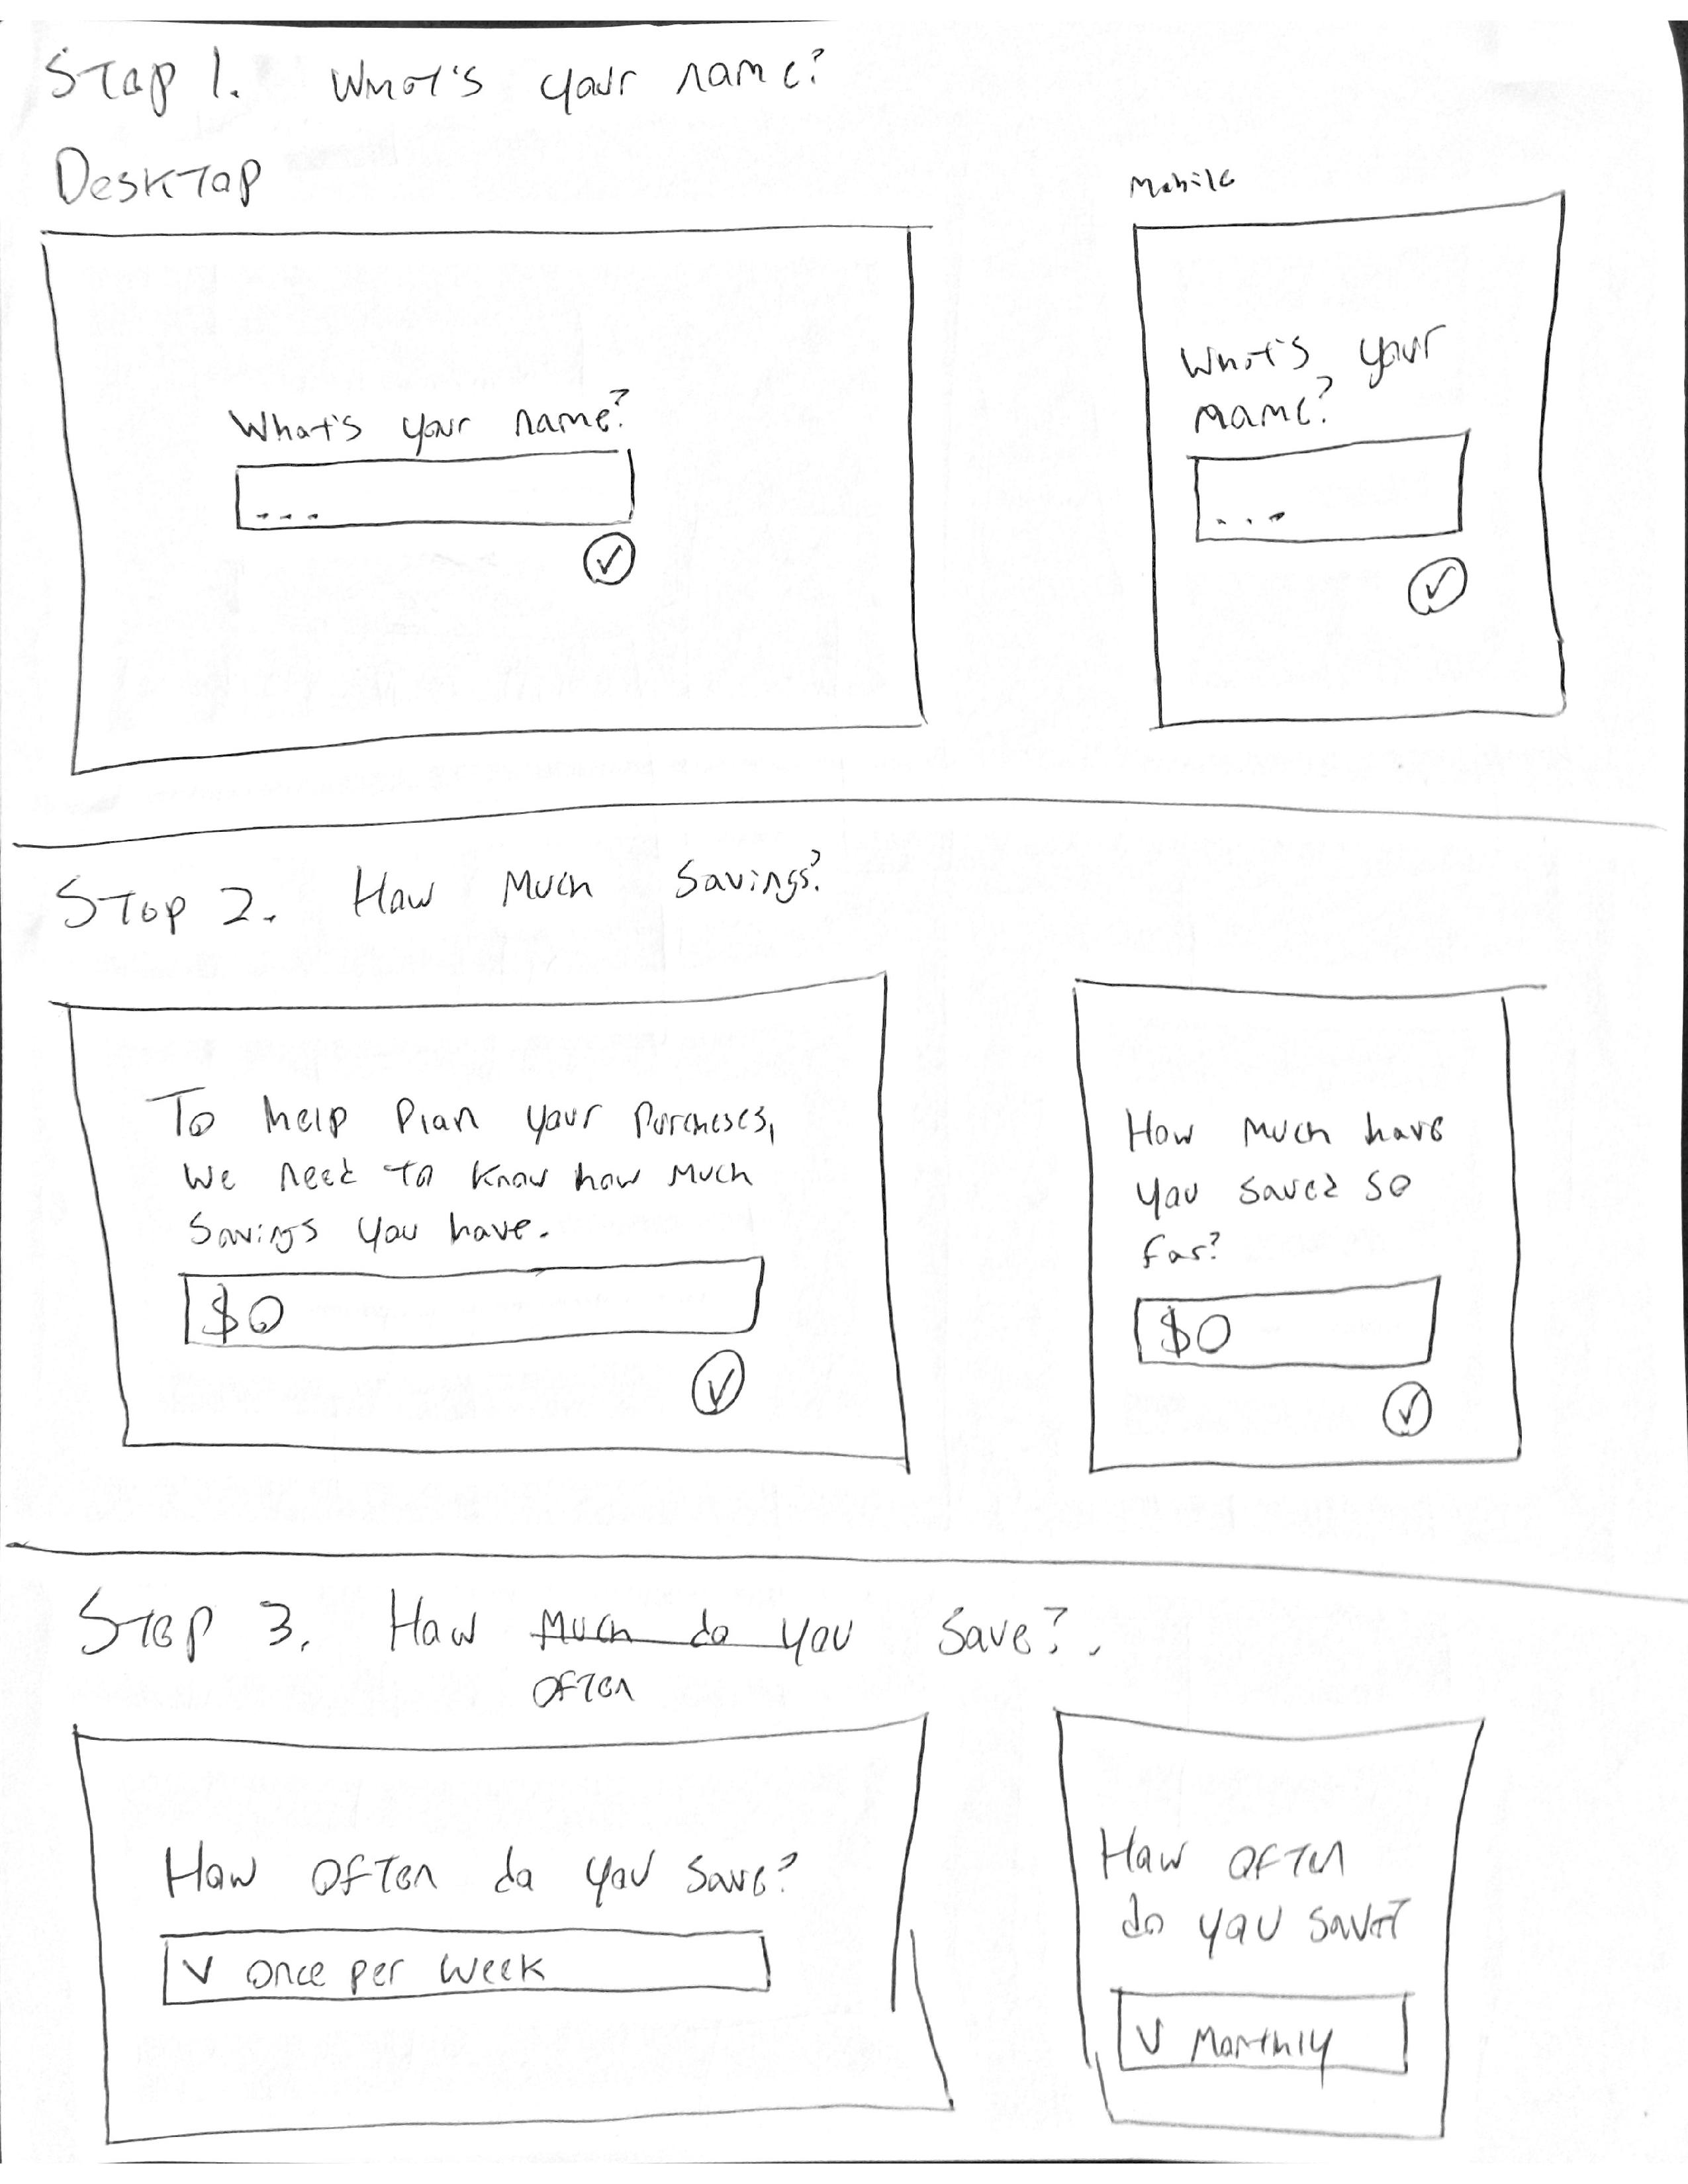 Step 1. What's your name?
Desktop
Mobile
What's your name?
...
What's your
name?
...
Step 2. How Much Savings?
To help Plan your Purcheses,
We need to know how much
Savings you have.
$0
How much have
you saved so
far?
$0
Step 3. How Much do you save?.
OFTEN
How OFTEN do you save?
V once per week
How OFTEN
do you save?
V Monthly